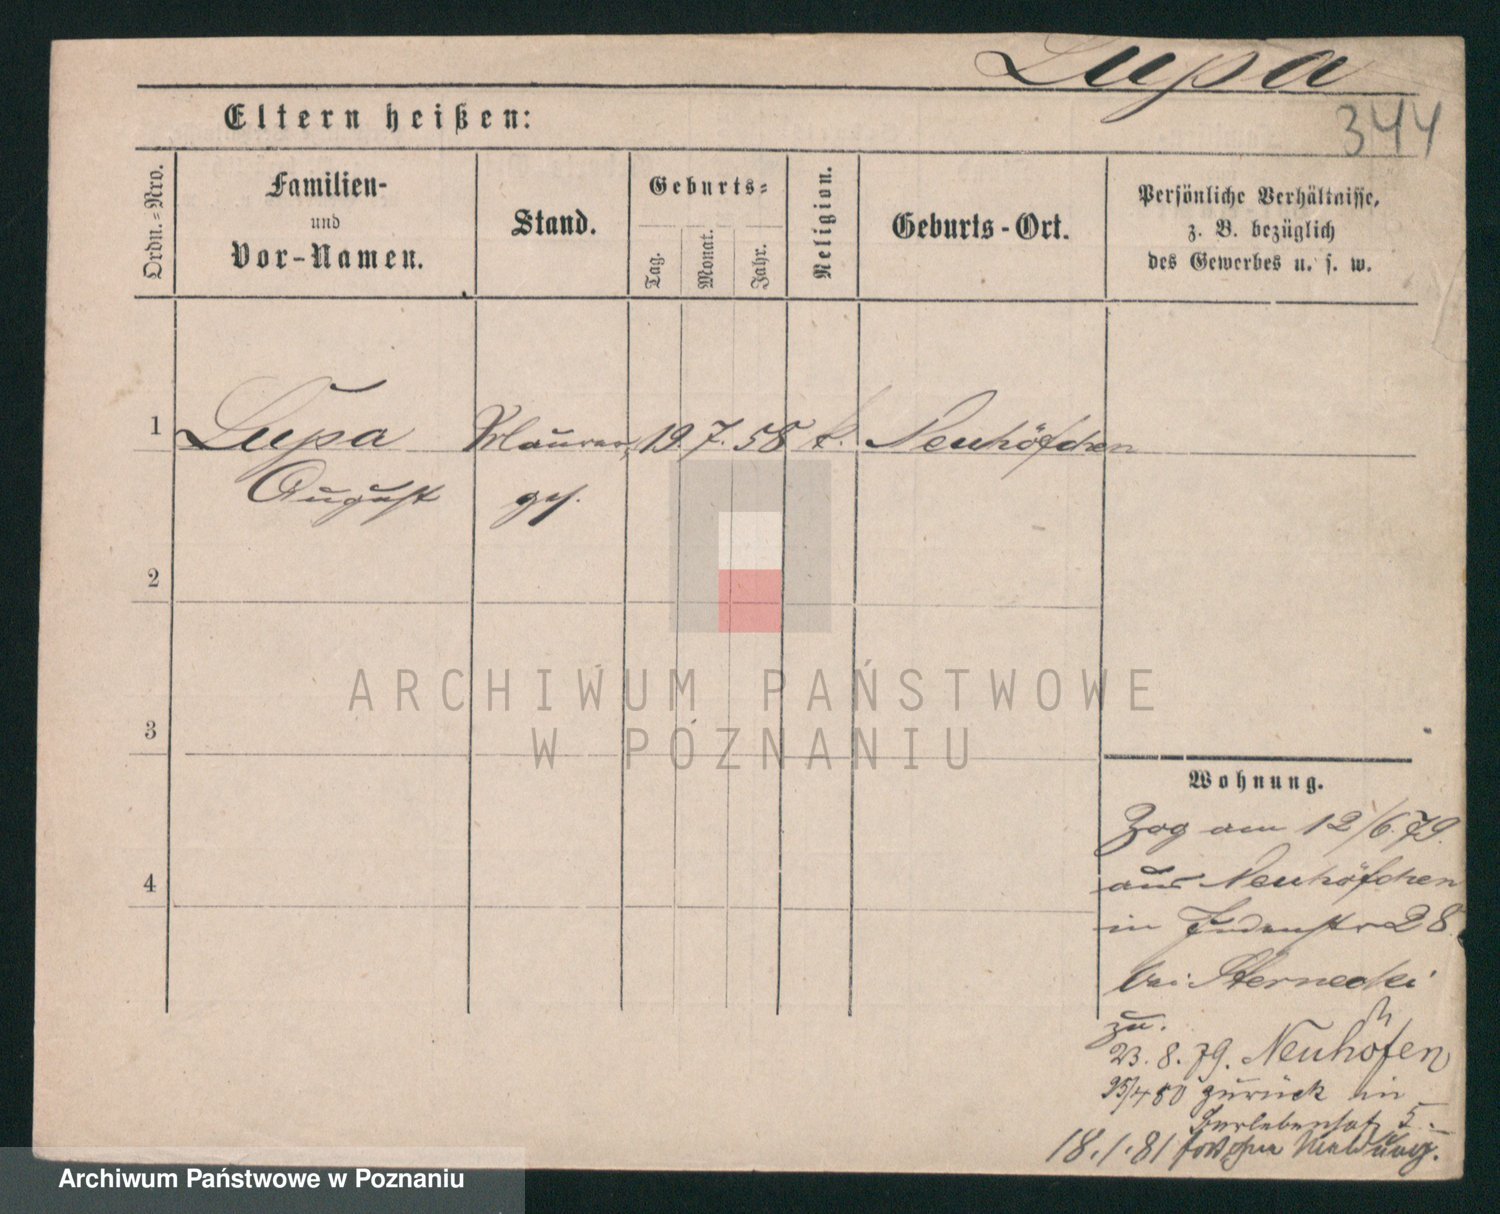 Lupa
344
Eltern heißen:
Ordn.-Nro.
Familien-
und
Vor-Namen.
Stand.
Geburts-
Tag.
Monat.
Jahr.
Religion.
Geburts-Ort.
Persönliche Verhältnisse,
z. B. bezüglich
des Gewerbes u. s. w.
1 Lupa Maurer 19. 7. 58 k. Neuhöfchen
August ges.
2
3
4
ARCHIWUM PAŃSTWOWE
W POZNANIU
Wohnung.
Zog am 12/6. 79.
aus Neuhöfchen
in Judenstr 28
bei Sternecki
zu.
23. 8. 79. Neuhöfen
25/4 80 zurück in
5.
18. 1. 81 ohne Meldung.
Archiwum Państwowe w Poznaniu